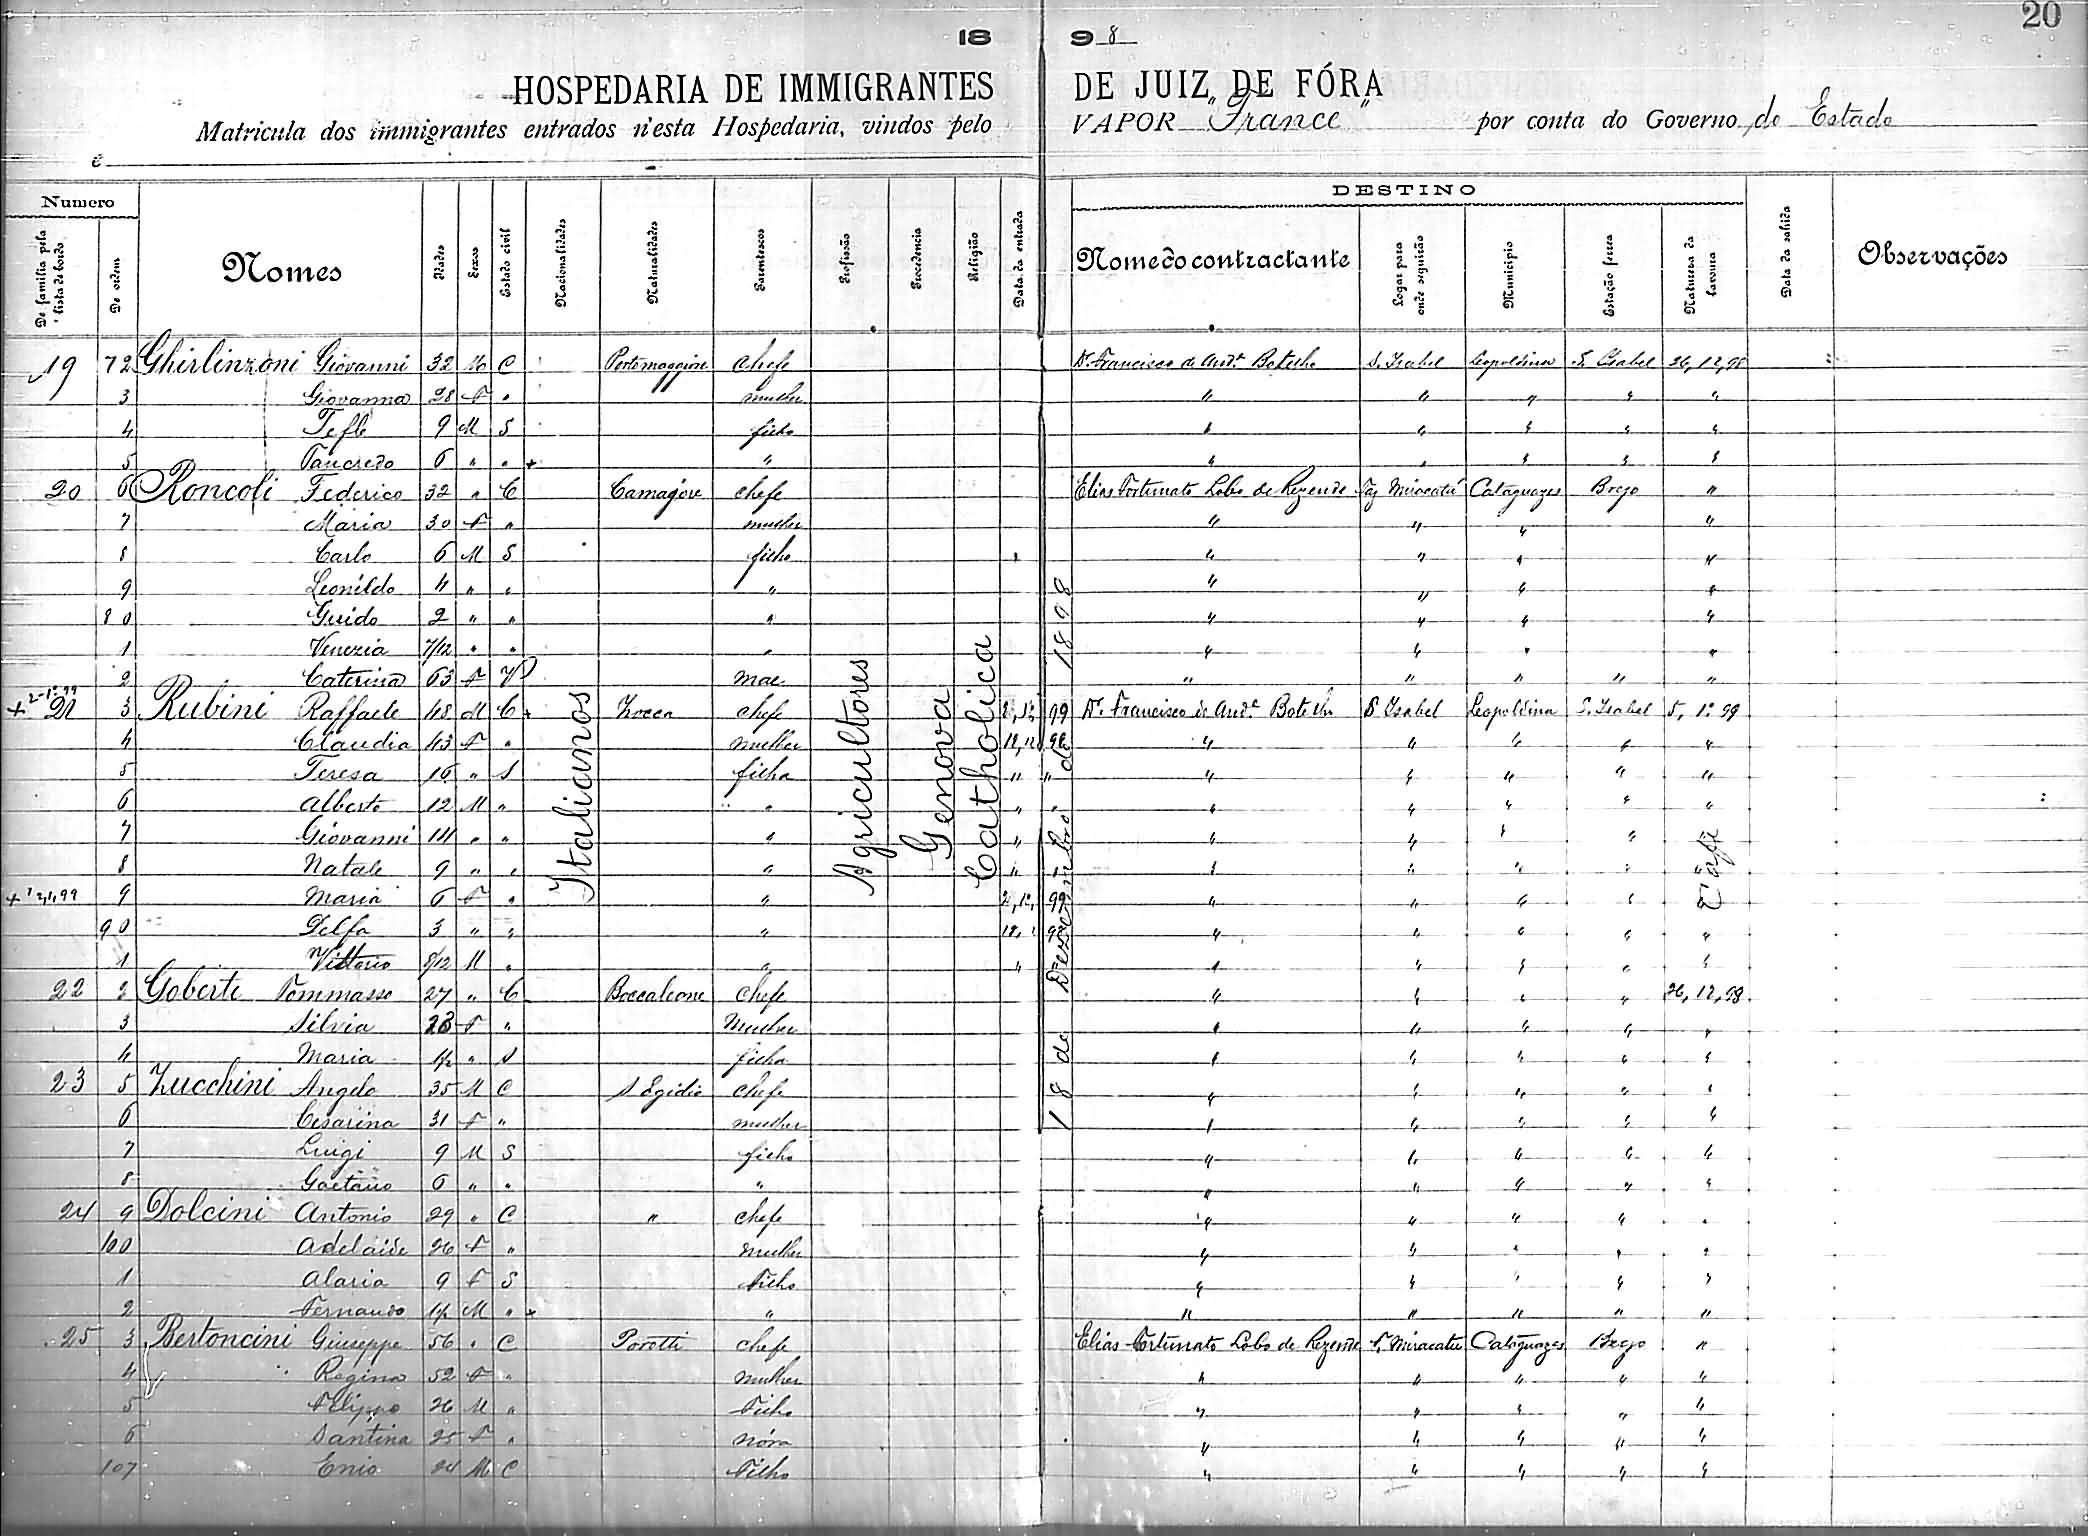 20
18 98
HOSPEDARIA DE IMMIGRANTES DE JUIZ DE FÓRA
Matricula dos immigrantes entrados n'esta Hospedaria, vindos pelo VAPOR "France" por conta do Governo do Estado
e
Numero DESTINO
De familia pela lista de bordo De ordem Nomes Idades Sexos Estado civil Nacionalidades Naturalidades Parentescos Profissão Procedencia Religião Data da entrada Nome do contractante Logar para onde seguirão Municipio Estação ferrea Natureza da lavoura Data da sahida Observações
Italianos Agricultores Genova Catholica 18 de Dezembro de 1898 Café
19 72 Ghirlinzoni Giovanni 32 M C Portomaggiore chefe Dr. Francisco de And.ª Botelho S. Izabel Leopoldina S. Izabel 26, 12, 98
3 Giovanna 28 F " mulher " " " " "
4 9 M S filho " " " " "
5 Tancredo 6 " " " " " " " "
20 6 Roncoli Federico 32 " C Camajore chefe Elias Fortunato Lobo de Rezende Faz Miracatú Cataguazes Brejo "
7 Maria 30 F " mulher " " " "
8 Carlo 6 M S filho " " " "
9 Leonildo 4 " " " " " " "
80 Guido 2 " " " " " " "
1 Venezia 7/12 " " " " " " "
2 Caterina 63 F V mae " " " " "
+ 2-1º-99 21 3 Rubini Raffaele 48 M C Zocca chefe 99 Dr. Francisco de And.ª Botelho S Izabel Leopoldina S. Izabel 5, 1º 99
4 Claudia 43 F " mulher 18, 12 98 " " " " "
5 Teresa 16 " S filha " " " " " " "
6 Alberto 12 M " " " " " " " " "
7 Giovanni 14 " " " " " " " " "
8 Natale 9 " " " " " " " " " "
+ 99 9 Maria 6 F " " 2, 1º, 99 " " " " "
90 Delfa 3 " " " 18, " 98 " " " " "
1 Vittorio 8/12 M " " " " " " " "
22 2 Goberti Tommasso 27 " C Boccaleone chefe " " " " 26, 12, 98
3 Silvia 23 F " Mulher " " " " "
4 Maria 1/2 " S filha " " " " "
23 5 Zucchini Angelo 35 M C S Egidio chefe " " " " "
6 Cesarina 31 F " mulher " " " " "
7 Luigi 9 M S filho " " " " "
8 Gaetano 6 " " " " " " " "
24 9 Dolcini Antonio 29 " C " chefe " " " " "
100 Adelaide 26 F " mulher " " " " "
1 Alaria 9 F S Filho " " " " "
2 Fernando 1/2 M " " " " " " "
25 3 Bertoncini Giuseppe 56 " C Porotti chefe Elias Fortunato Lobo de Rezende F. Miracatu Cataguazes Brejo "
4 Regina 52 F " mulher " " " " "
5 Filippo 26 M " Filho " " " " "
6 Santina 25 F " nóra " " " " "
107 Enio 24 M C Filho " " " " "